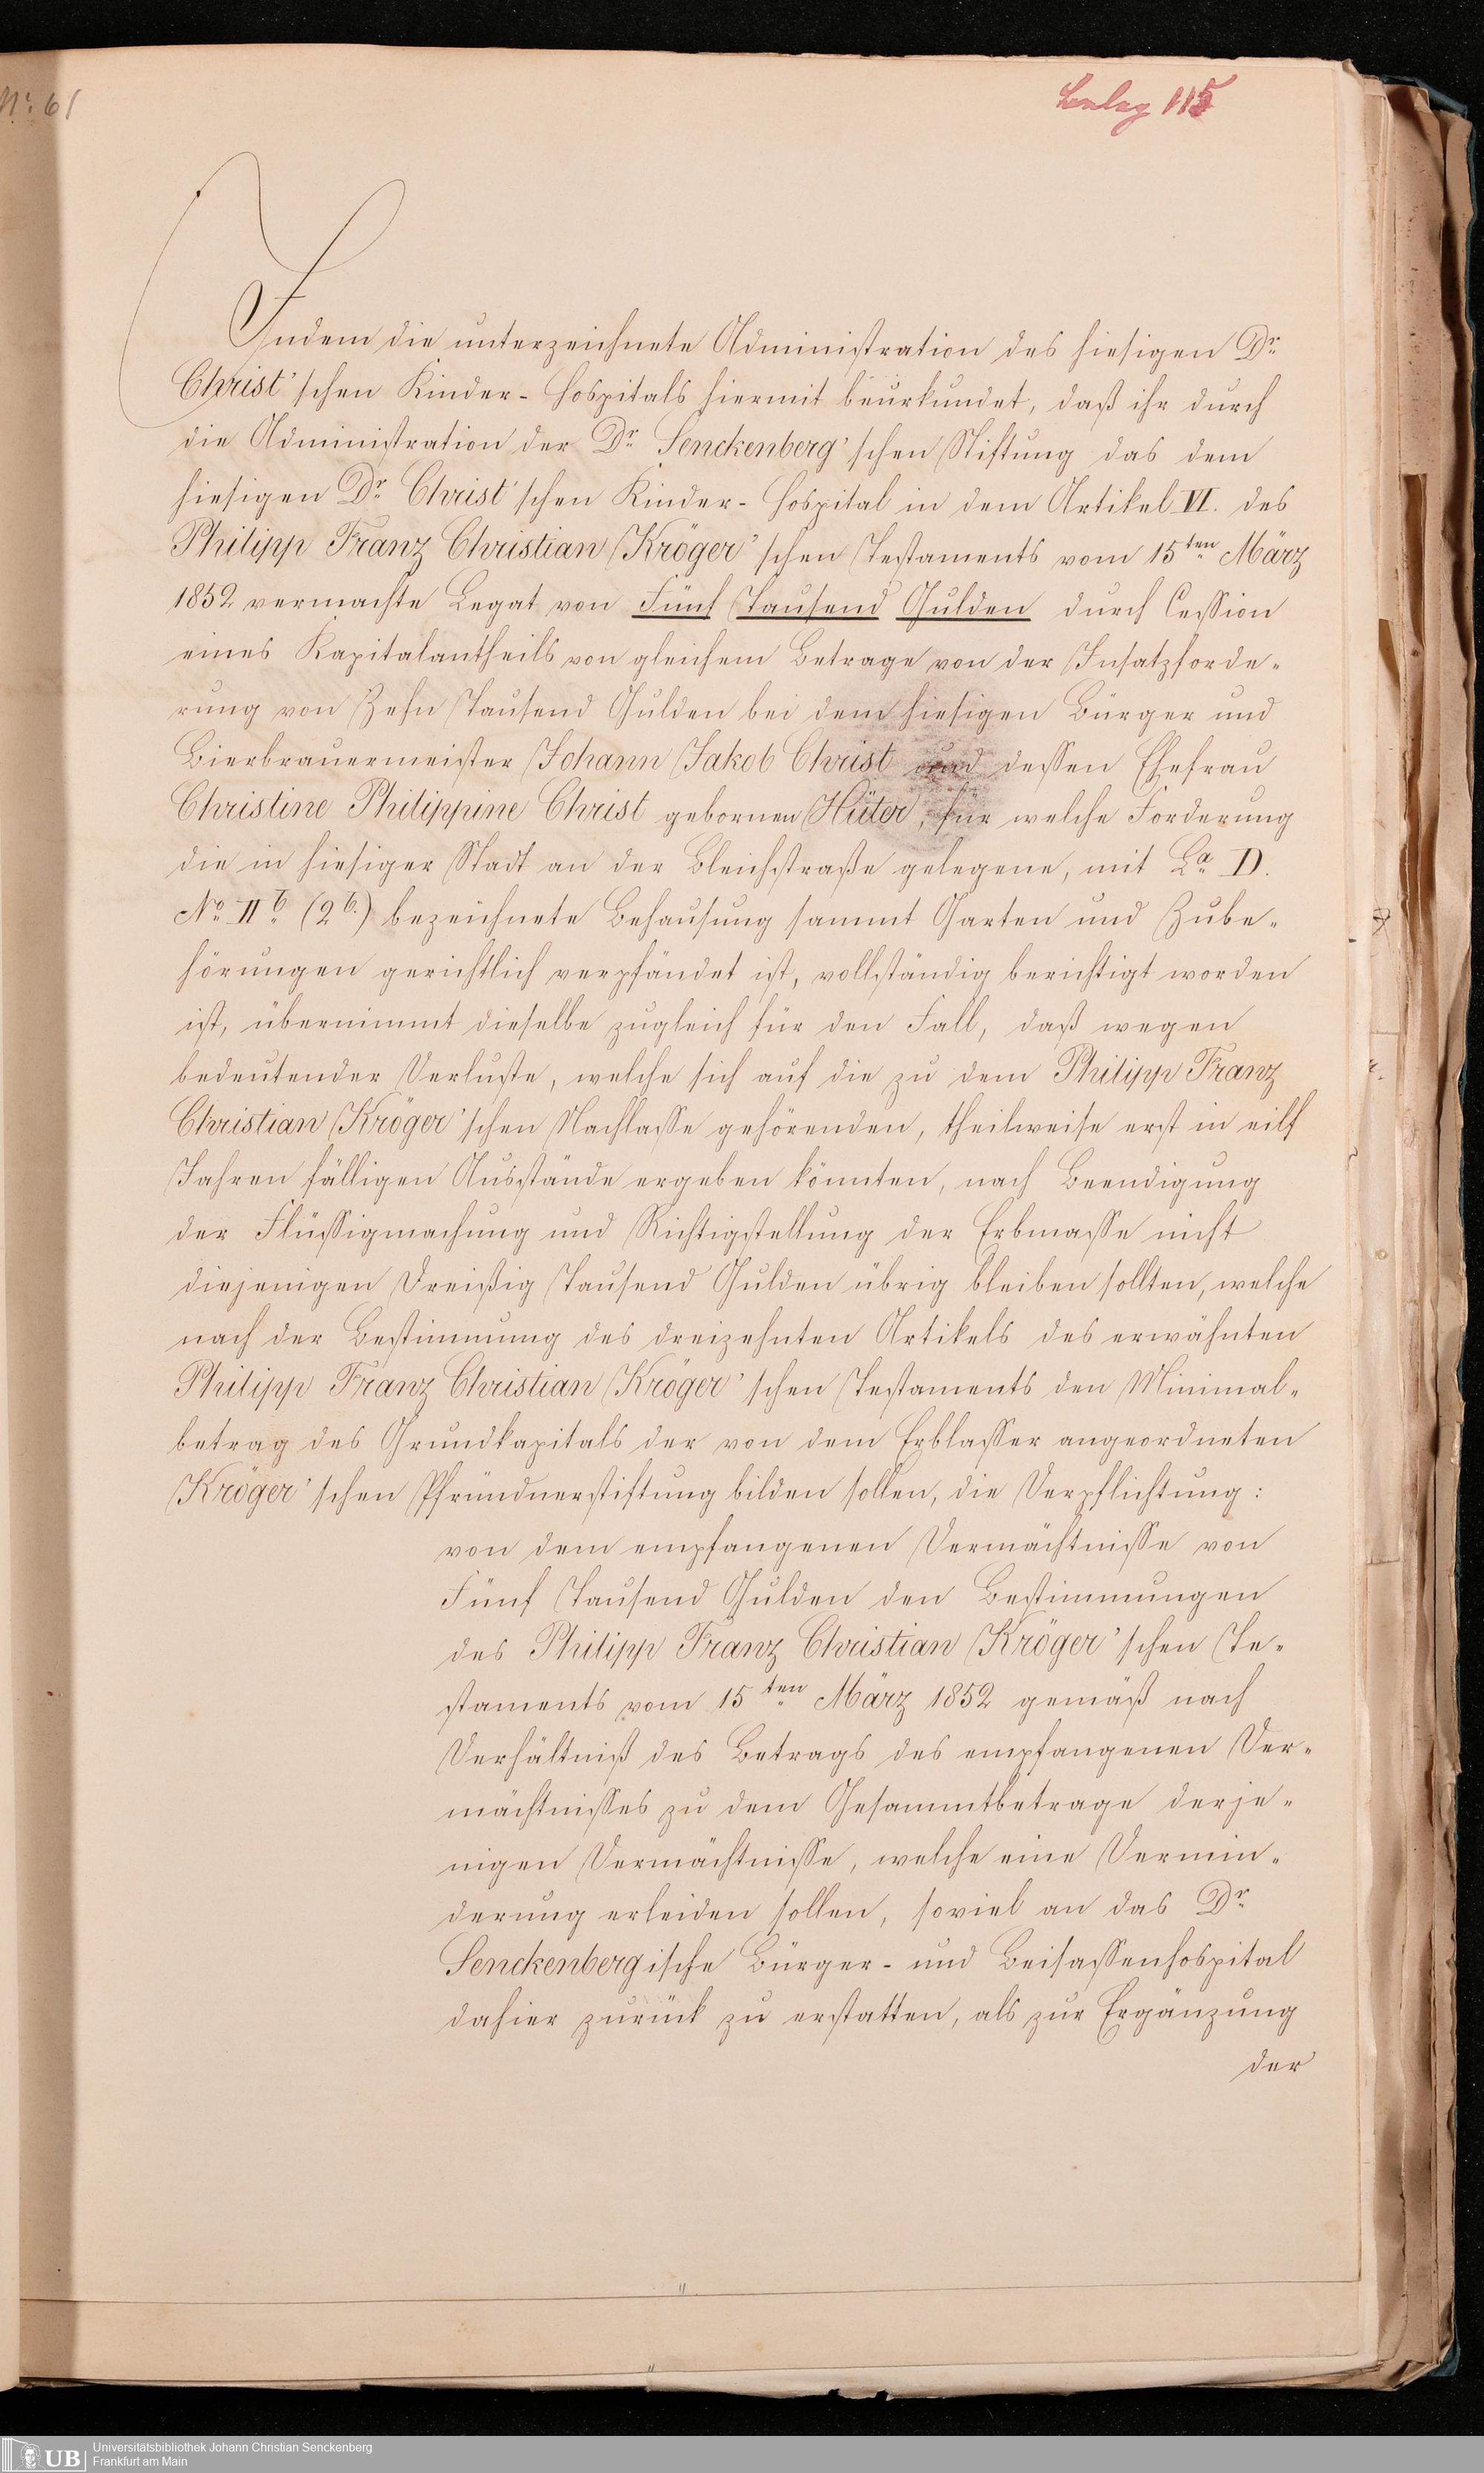 No. 61
Beleg 115
Indem die unterzeichnete Administration des hiesigen Dr.
Christ'schen Kinder-Hospitals hiermit beurkundet, daß ihr durch
die Administration der Dr. Senckenberg'schen Stiftung das dem
hiesigen Dr. Christ'schen Kinder-Hospital in dem Artikel VI. des
Philipp Franz Christian Kröger'schen Testaments vom 15ten März
1852 vermachte Legat von Fünf Tausend Gulden durch Cession
eines Kapitalantheils von gleichem Betrage von der Insatzforde-
rung von Zehn Tausend Gulden bei dem hiesigen Bürger und
Bierbrauermeister Johann Jakob Christ und dessen Ehefrau
Christine Philippine Christ gebornen Hüter, für welche Forderung
die in hiesiger Stadt an der Bleichstraße gelegene, mit La. D.
No. IIb. (2b.) bezeichnete Behausung sammt Garten und Zube-
hörungen gerichtlich verpfändet ist, vollständig berichtigt worden
ist, übernimmt dieselbe zugleich für den Fall, daß wegen
bedeutender Verluste, welche sich auf die zu dem Philipp Franz
Christian Kröger'schen Nachlasse gehörenden, theilweise erst in eilf
Jahren fälligen Ausstände ergeben könnten, nach Beendigung
der Flüssigmachung und Richtigstellung der Erbmasse nicht
diejenigen Dreißig Tausend Gulden übrig bleiben sollten, welche
nach der Bestimmung des dreizehnten Artikels des erwähnten
Philipp Franz Christian Kröger'schen Testaments den Minimal-
betrag des Grundkapitals der von dem Erblasser angeordneten
Kröger'schen Pfründnerstiftung bilden sollen, die Verpflichtung:
von dem empfangenen Vermächtnisse von
Fünf Tausend Gulden den Bestimmungen
des Philipp Franz Christian Kröger'schen Te-
staments vom 15ten März 1852 gemäß nach
Verhältniß des Betrags des empfangenen Ver-
mächtnisses zu dem Gesammtbetrage derje-
nigen Vermächtnisse, welche eine Vermin-
derung erleiden sollen, soviel an das Dr.
Senckenbergische Bürger- und Beisassenhospital
dahier zurück zu erstatten, als zur Ergänzung
der
UB
Universitätsbibliothek Johann Christian Senckenberg
Frankfurt am Main